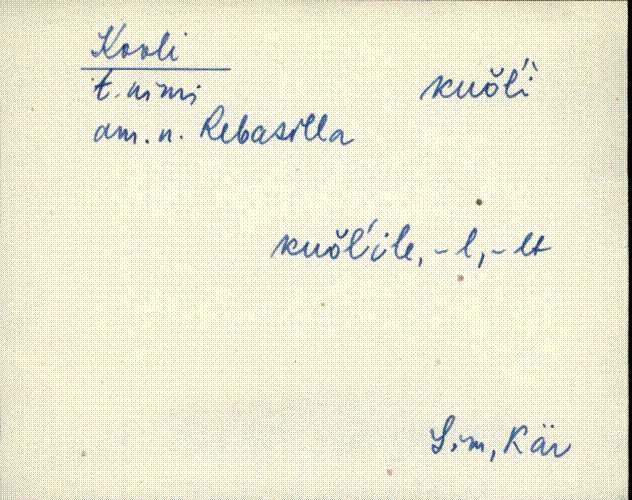 Kooli
t. nimi
am. n. Rebasilla
kuǒĺi̬
kuǒĺile, -l, -lt
Sim, Kär